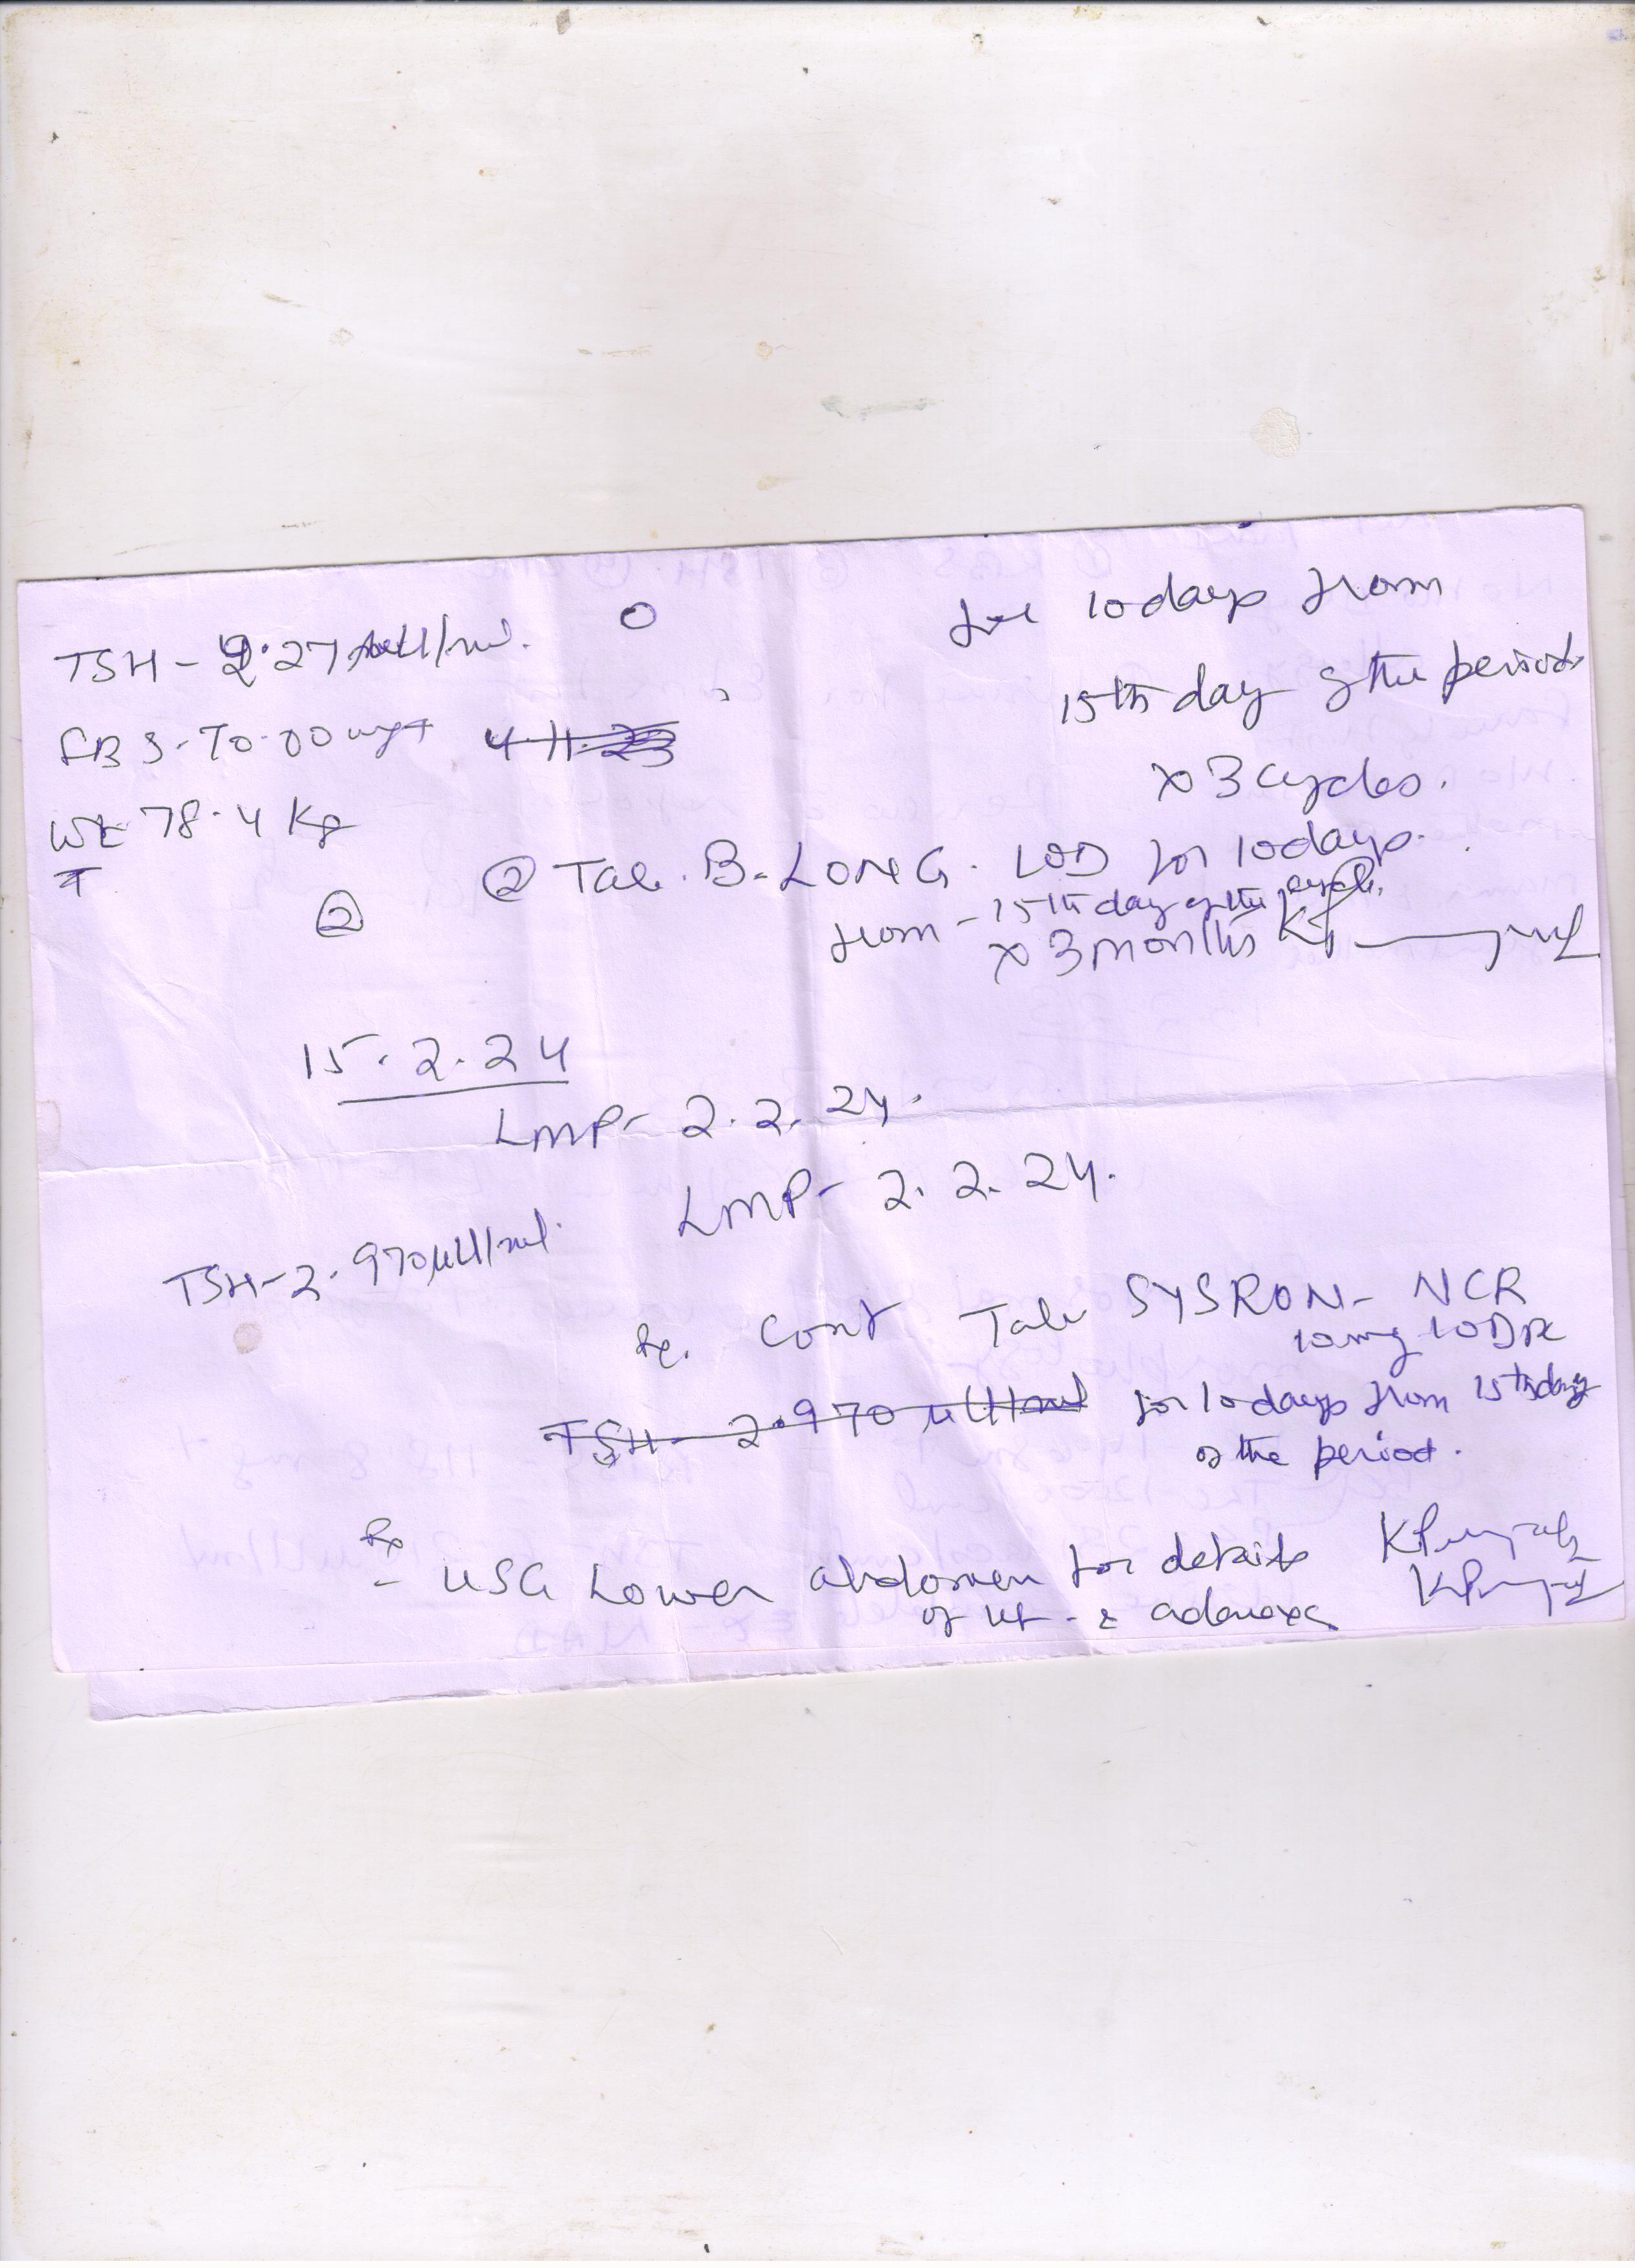 O
for 10 days from
TSH - 2.27 µIU/ml.
15th day of the period
FBS - 70.00 mg% 4.11.23
x 3 cycles.
Wt 78.4 Kg
② Tab. B-LONG. 1OD for 10 days.
②
from - 15th day of the cycle.
x 3 months
15.2.24
LMP - 2.2.24.
LMP - 2.2.24.
TSH - 2.970 µIU/ml.
Rx. Cont Tab SYSRON - NCR
10mg 1OD
TSH - 2.970 µIU/ml for 10 days from 15th day
of the period.
Rx
- USG Lower abdomen for details
of ut - & adenexa